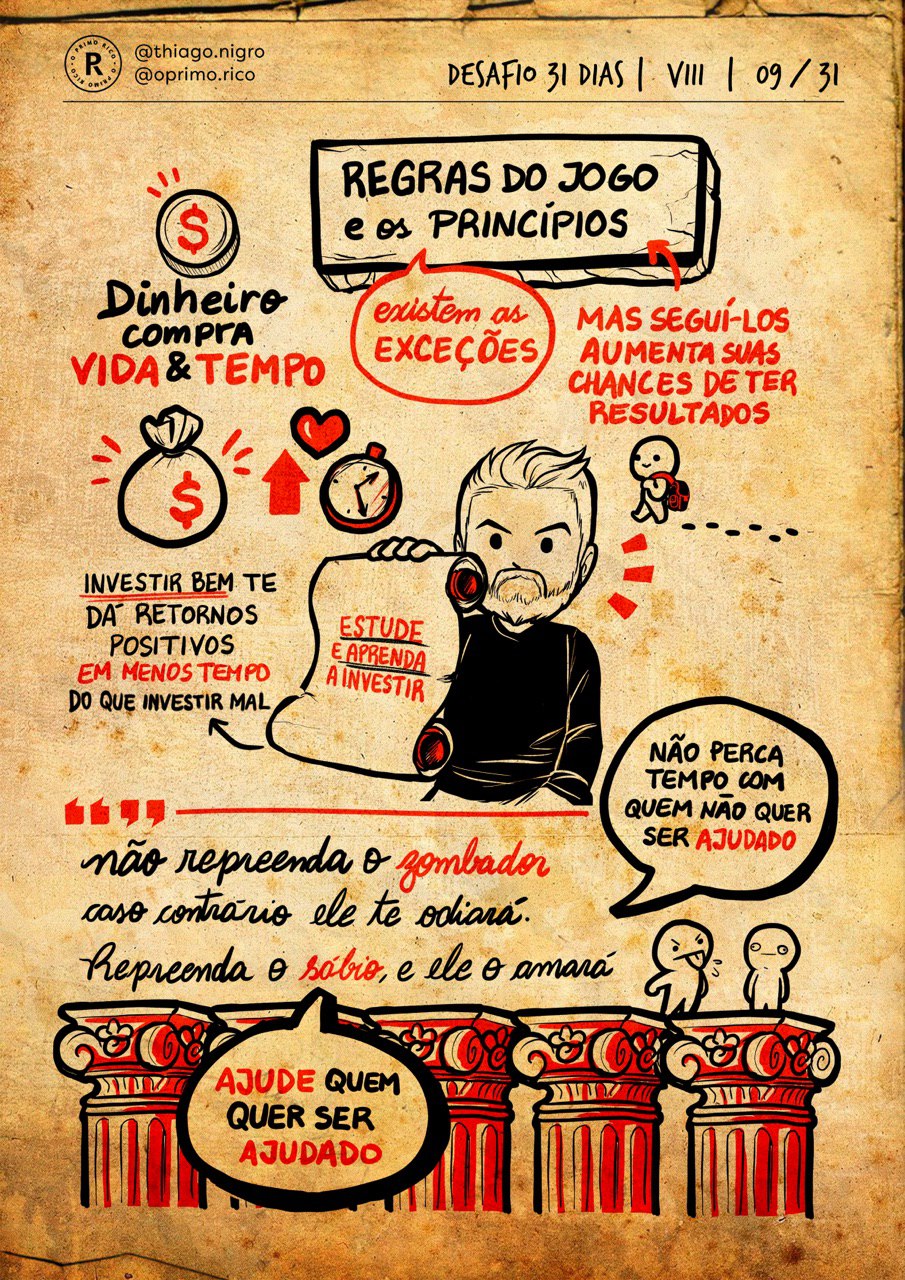 R
O PRIMO RICO
O PRIMO RICO
@thiago.nigro
@oprimo.rico
DESAFIO 31 DIAS | VIII | 09 / 31
REGRAS DO JOGO
e os PRINCÍPIOS
existem as
EXCEÇÕES
MAS SEGUÍ-LOS
AUMENTA SUAS
CHANCES DE TER
RESULTADOS
$
Dinheiro
COMPRA
VIDA & TEMPO
$
INVESTIR BEM TE
DÁ RETORNOS
POSITIVOS
EM MENOS TEMPO
DO QUE INVESTIR MAL
ESTUDE
E APRENDA
A INVESTIR
NÃO PERCA
TEMPO COM
QUEM NÃO QUER
SER AJUDADO
não repreenda o zombador
caso contrário ele te odiará.
Repreenda o sábio, e ele o amará
AJUDE QUEM
QUER SER
AJUDADO